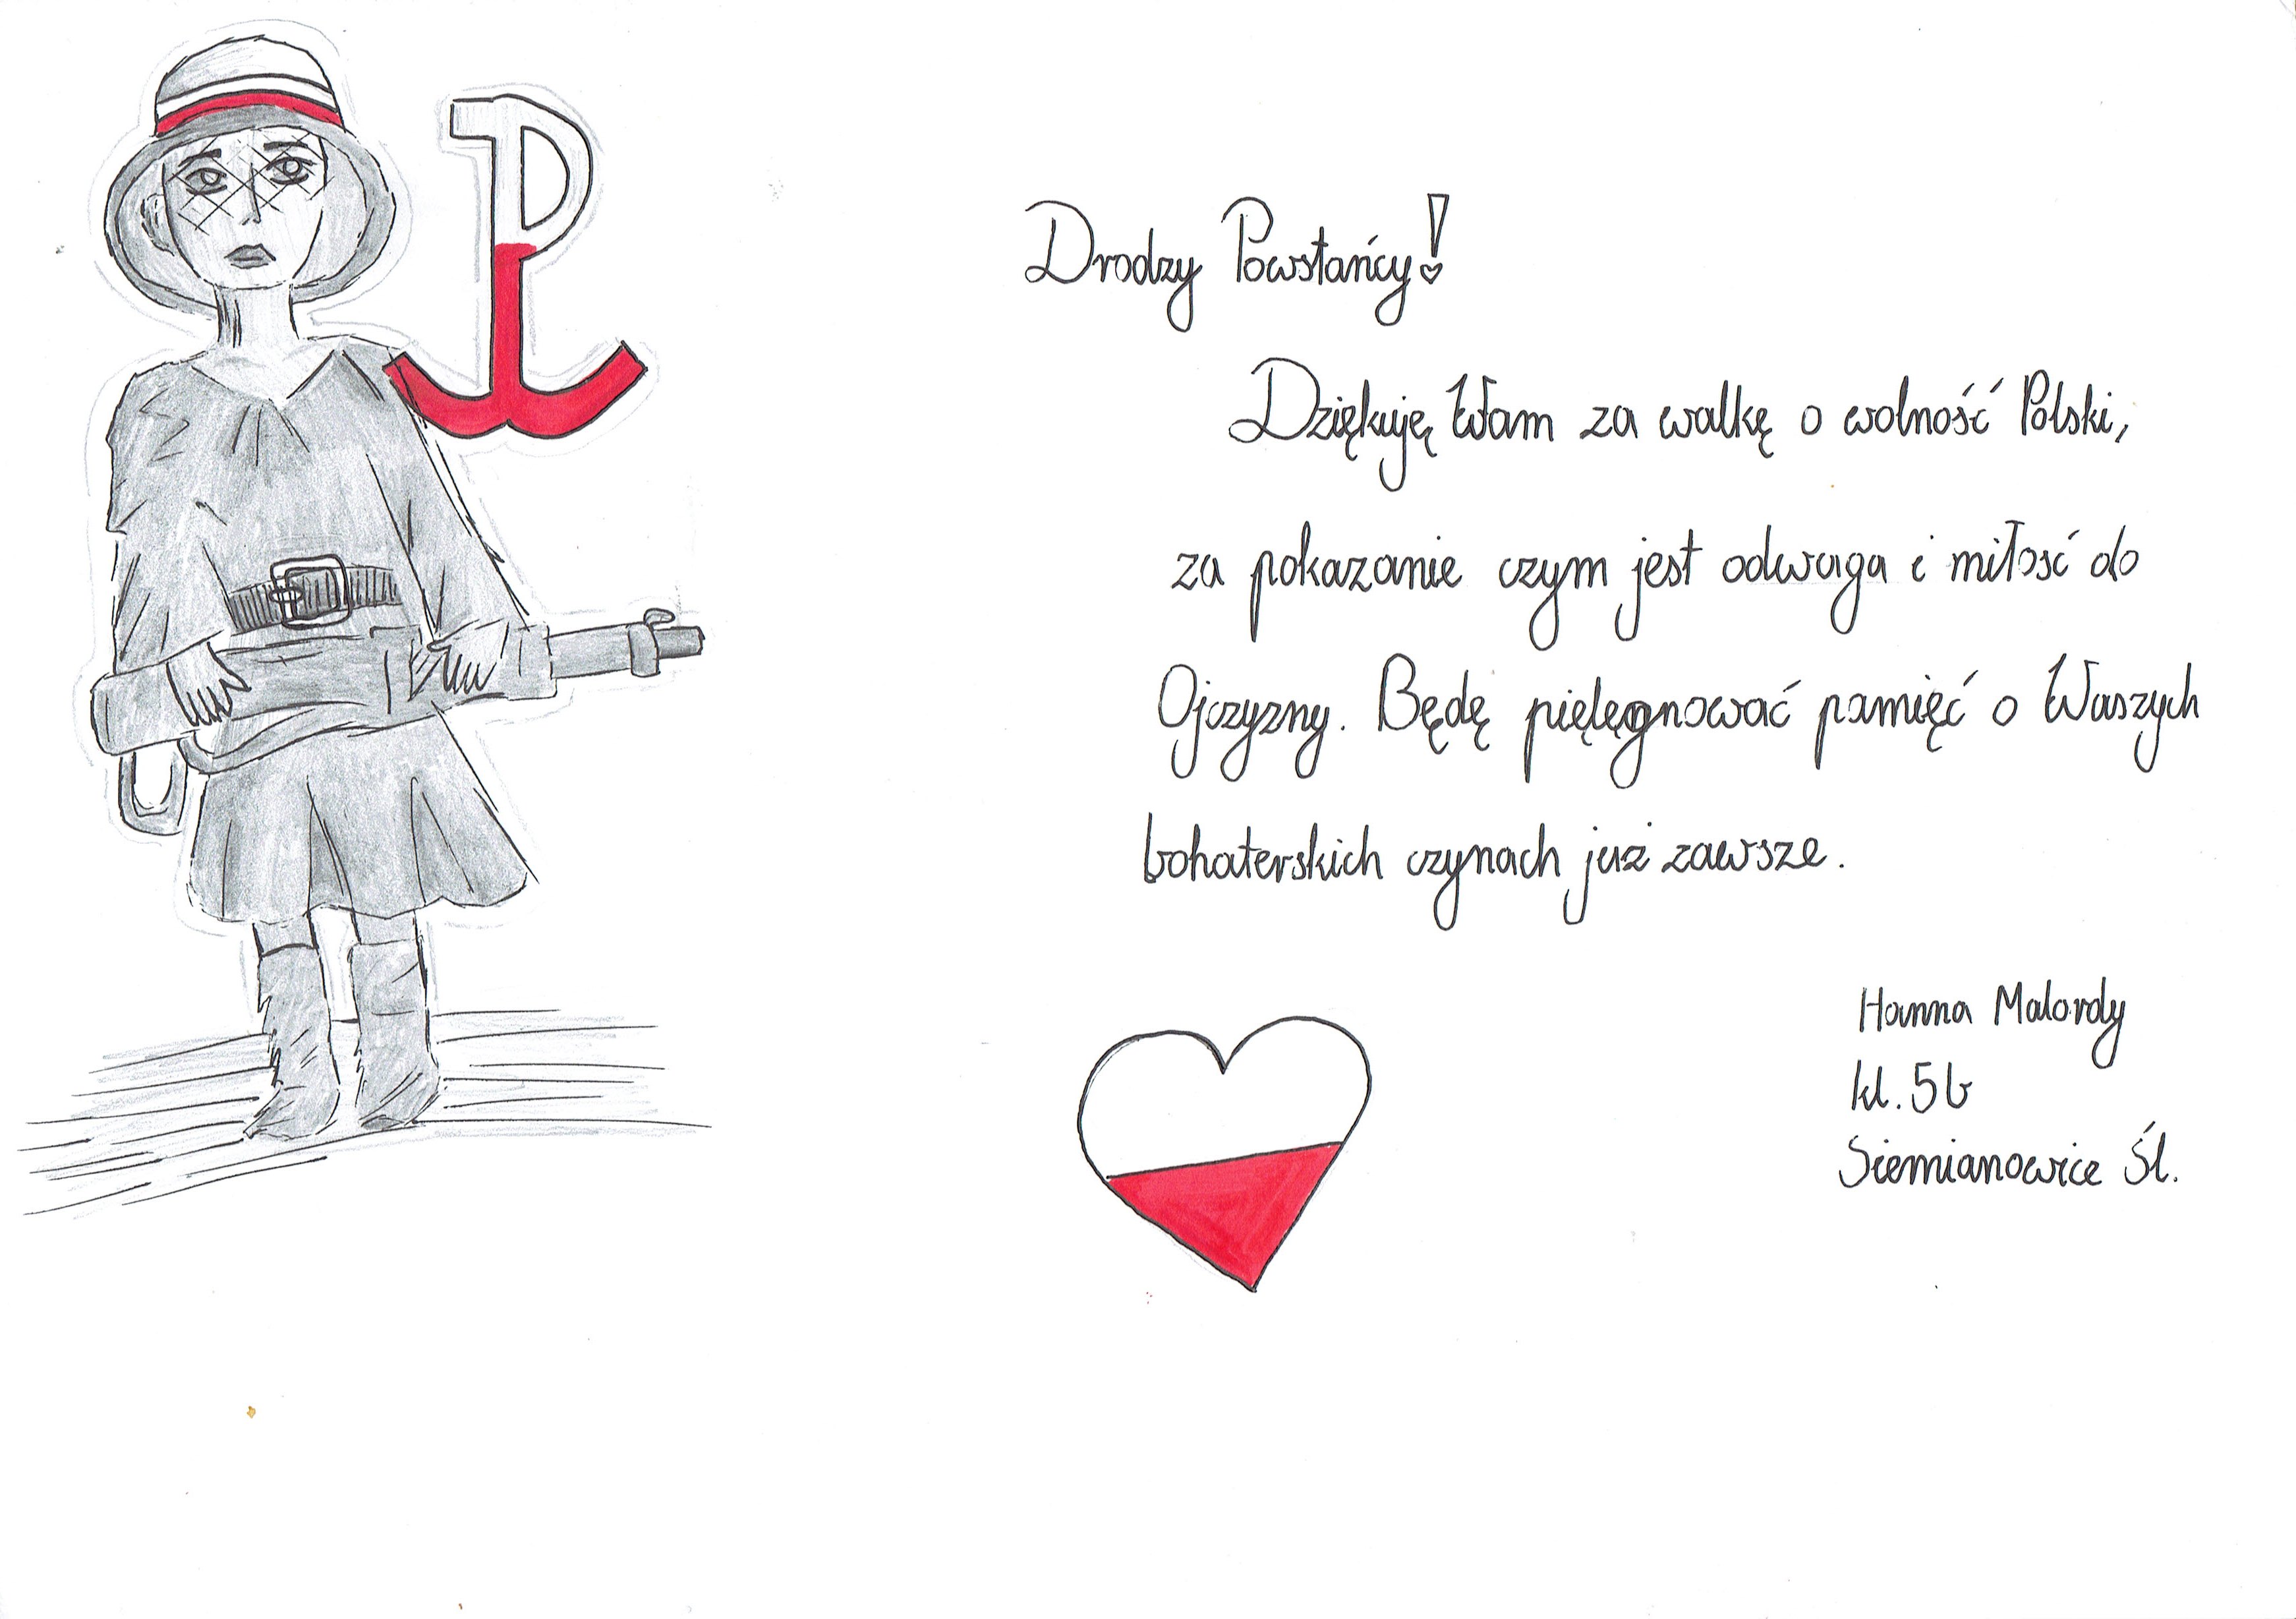 Drodzy Powstańcy!
Dziękuję Wam za walkę o wolność Polski,
za pokazanie czym jest odwaga i miłość do
Ojczyzny. Będę pielęgnować pamięć o Waszych
bohaterskich czynach już zawsze.
Hanna Malordy
kl. 5b
Siemianowice Śl.